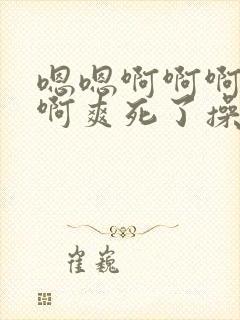 嗯嗯啊啊啊
啊爽死了操
崔巍